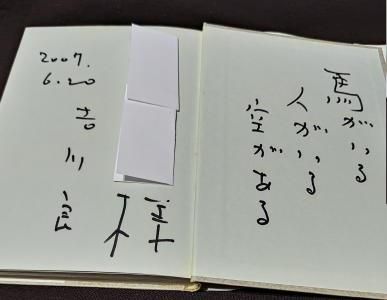 馬がいる
人がいる
空がある
様
吉川良
2007.
6.20